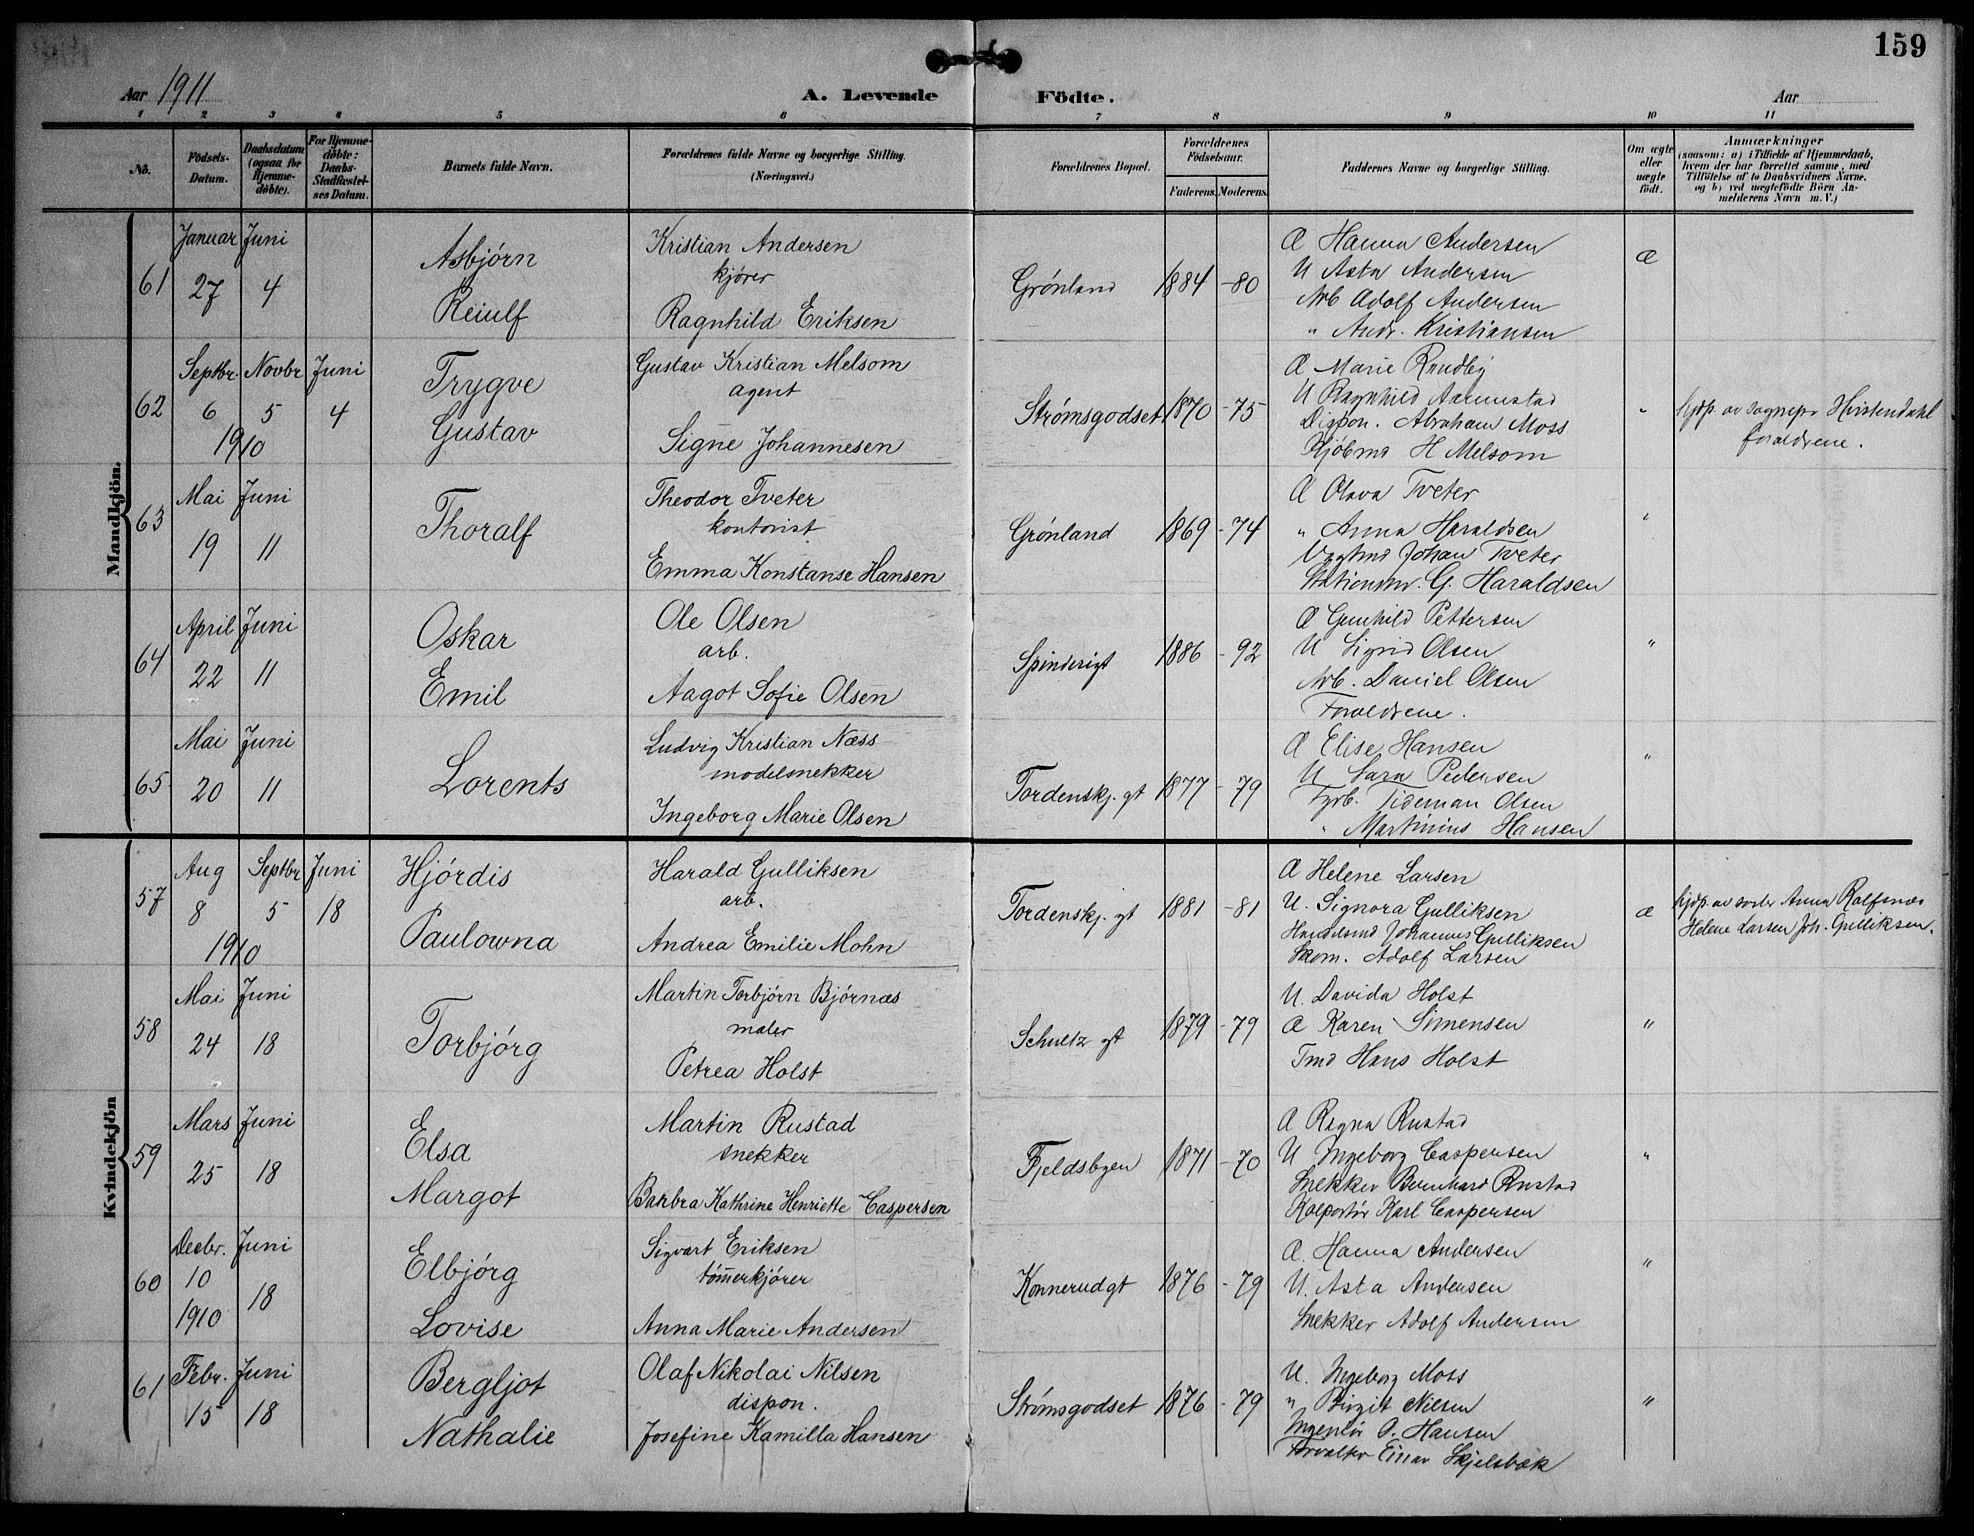 159
Aar 1911
A. Levende Födte.
Aar
1 2 3 4 5 6 7 8 9 10 11
No.
Födsels-Datum.
Daabsdatum (ogsaa for Hjemme-döbte).
For Hjemme-döbte: Daabs-Stadfæstel-ses Datum.
Barnets fulde Navn.
Forældrenes fulde Navne og borgerlige Stilling.
(Næringsvei.)
Forældrenes Bopæl.
Forældrenes Födselsaar.
Faderens. Moderens.
Faddernes Navne og borgerlige Stilling.
Om ægte eller uægte födt.
Anmærkninger
(saasom: a) i Tilfælde af Hjemmedaab,
hvem der har forrettet samme, med
Tilföielse af to Daabsvidners Navne.
og b) ved uægtefödte Börn An-
melderens Navn m. V.)
Mandkjön.
61
Januar 27
Juni 4
Asbjørn
Reiulf
Kristian Andersen
kjører
Ragnhild Eriksen
Grønland
1884 -80
Æ Hanna Andersen
U Asta Andersen
Arb Adolf Andersen
" Andr. Kristiansen
Æ
62
Septbr. 6 1910
Novbr 5
Juni 4
Trygve
Gustav
Gustav Kristian Melsom
agent
Signe Johannesen
Strømsgodset
1870 -75
Æ Marie Rundby
U Ragnhild Aamustad
Dispon. Abraham Moss
Kjøbmd H Melsom
"
hjdp. av sognepr Hvistendahl
foraldrene.
63
Mai 19
Juni 11
Thoralf
Theodor Tveter
kontorist
Emma Konstanse Hansen
Grønland
1869 -74
Æ Olava Tveter
" Anna Haraldsen
Johan Tveter
G. Haraldsen
"
64
April 22
Juni 11
Oskar
Emil
Ole Olsen
arb.
Aagot Sofie Olsen
Spinderigt
1886 -92
Æ Gunhild Pettersen
U Sigrid Olsen
Arb. Daniel Olsen
Foraldrene.
"
65
Mai 20
Juni 11
Lorents
Ludvig Kristian Næss
modelsnekker
Ingeborg Marie Olsen
Tordenskj. gt
1877 -79
Æ Elise Hansen
U Sara Pedersen
Fyrb. Tideman Olsen
" Martinius Hansen
"
Kvindekjön
57
Aug 8 1910
Septbr 5
Juni 18
Hjórdis
Paulowna
Harald Gulliksen
arb.
Andrea Emilie Mohn
Tordenskj. gt
1881 -81
Æ Helene Larsen
U. Signora Gulliksen
Handelsmd Johannes Gulliksen
Skom. Adolf Larsen
Æ
hjdp. av Anna Rolfsnes
Helene Larsen Joh. Gulliksen.
58
Mai 24
Juni 18
Torbjórg
Martin Torbjórn Bjórnæs
maler
Petrea Holst
Schultz gt
1879 -79
U. Davida Holst
Æ Karen Simensen
Tmd Hans Holst
"
59
Mars 25
Juni 18
Elsa
Margot
Martin Rustad
snekker
Barbra Kathrine Henriette Caspersen
Fjeldsbyen
1871 -70
Æ Ragna Rustad
U Ingeborg Caspersen
Snekker Bernhard Rustad
Kolportör Karl Caspersen
"
60
Decbr. 10 1910
Juni 18
Elbjórg
Lovise
Sigvart Eriksen
tóm̅erkjórer
Anna Marie Andersen
Konnerudgt
1876 -79
Æ. Hanna Andersen
U. Asta Andersen
Snekker Adolf Andersen
"
61
Febr. 15
Juni 18
Bergljot
Nathalie
Olaf Nikolai Nilsen
dispon.
Josefine Kamilla Hansen
Strømsgodset
1876 -79
U. Ingeborg Moss
" Birgit Nilsen
Ingeniör O. Hansen
Forvalter Einar Skjelsbæk
"